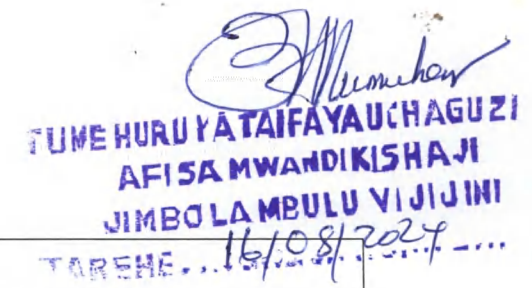 TUME HURU YA TAIFA YA UCHAGUZI
AFISA MWANDIKISHAJI
JIMBO LA MBULU VIJIJINI
TAREHE... 16/08/2024